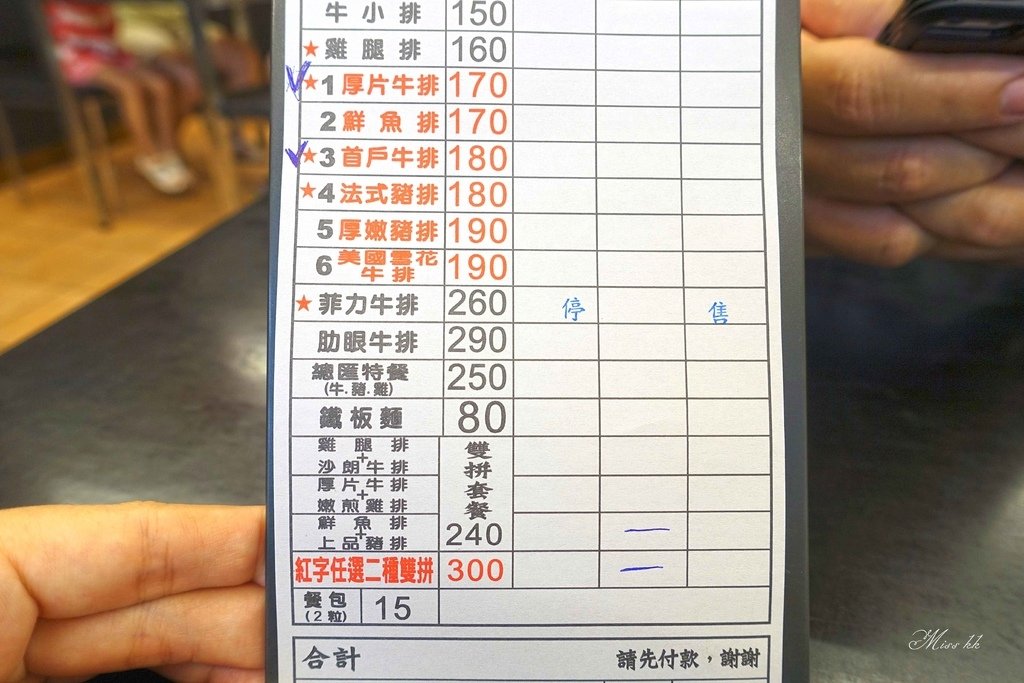 牛小排 150
★雞腿排 160
★1厚片牛排 170
2鮮魚排 170
★3首戶牛排 180
★4法式豬排 180
5厚嫩豬排 190
6美國雪花牛排 190
★菲力牛排 260 停 售
肋眼牛排 290
總匯特餐 250
(牛.豬.雞)
鐵板麵 80
雞腿排
+
沙朗牛排
厚片牛排
+
嫩煎雞排
鮮魚排
+
上品豬排
雙拼套餐
240
紅字任選二種雙拼 300
餐包 15
(2粒)
合計 請先付款，謝謝
Miss kk